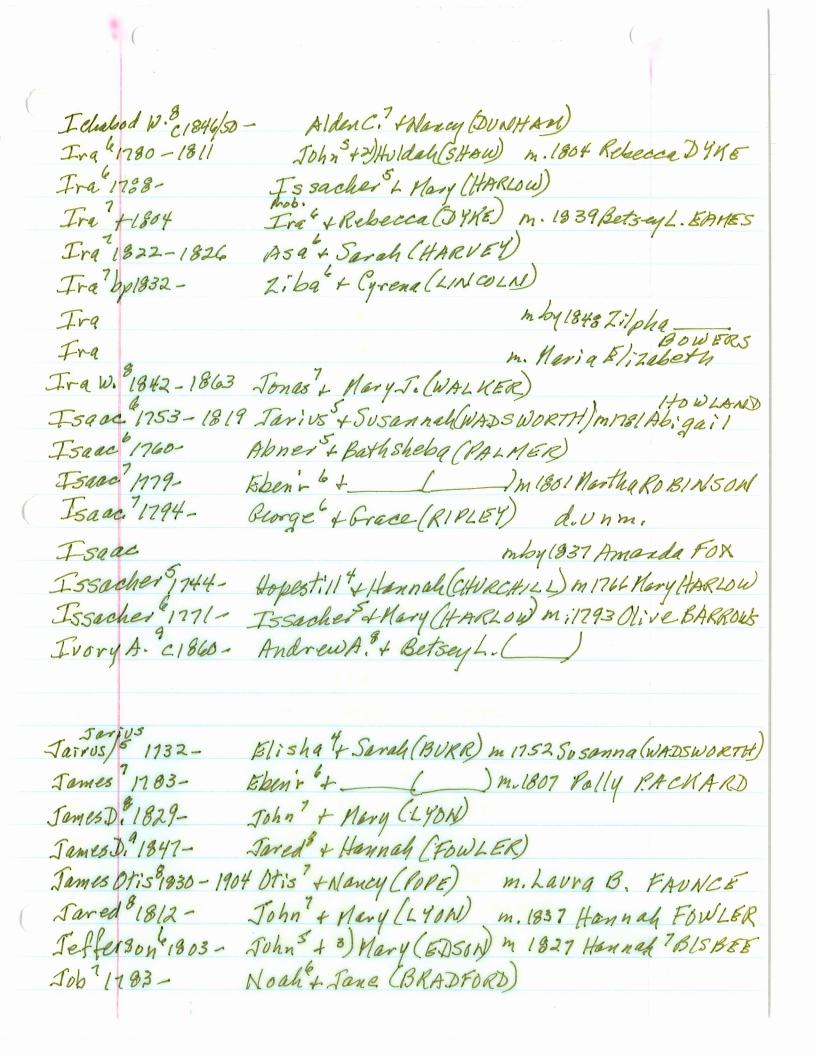 Ichabod W.⁸ c1846/50- Alden C.⁷ + Nancy (DUNHAM)
Ira⁶ 1780-1811 John⁵ + 2) Huldah (SHAW) m. 1804 Rebecca DYKE
Ira⁶ 1788- Issacher⁵ + Mary (HARLOW)
Prob.
Ira⁷ +1804 Ira⁶ + Rebecca (DYKE) m. 1839 Betsey L. EAMES
Ira⁷ 1822-1826 Asa⁶ + Sarah (HARVEY)
Ira⁷ bp1832- Ziba⁶ + Cyrena (LINCOLN)
Ira m by 1848 Zilpha ____
BOWERS
Ira m. Maria Elizabeth
Ira W.⁸ 1842-1863 Jonas⁷ + Mary J. (WALKER)
HOWLAND
Isaac⁶ 1753-1819 Jarius⁵ + Susannah (WADSWORTH) m1781 Abigail
Isaac⁶ 1760- Abner⁵ + Bathsheba (PALMER)
Isaac⁷ 1779- Eben'r⁶ + ____ (____) m 1801 Martha ROBINSON
Isaac⁷ 1794- George⁶ + Grace (RIPLEY) d. unm.
Isaac m by 1837 Amanda FOX
Issacher⁵ 1744- Hopestill⁴ + Hannah (CHURCHILL) m 1766 Mary HARLOW
Issacher⁶ 1771- Issacher⁵ + Mary (HARLOW) m:1793 Olive BARROWS
Ivory A.⁹ c1860- Andrew A.⁸ + Betsey L. (____)
Jarius
Jairus/⁵ 1732- Elisha⁴ + Sarah (BURR) m 1752 Susanna (WADSWORTH)
James⁷ 1783- Eben'r⁶ + ____ (____) m. 1807 Polly PACKARD
James D.⁸ 1829- John⁷ + Mary (LYON)
James D.⁹ 1847- Jared⁸ + Hannah (FOWLER)
James Otis⁸ 1830-1904 Otis⁷ + Nancy (POPE) m. Laura B. FAUNCE
Jared⁸ 1812- John⁷ + Mary (LYON) m. 1837 Hannah FOWLER
Jefferson⁶ 1803- John⁵ + 3) Mary (EDSON) m 1827 Hannah⁷ BISBEE
Job⁷ 1783- Noah⁶ + Jane (BRADFORD)